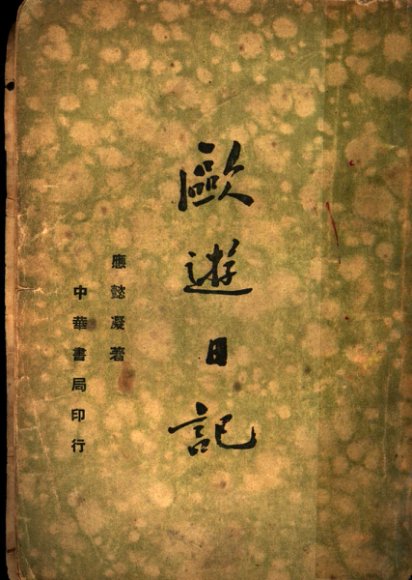 歐遊日記
應懿凝著
中華書局印行